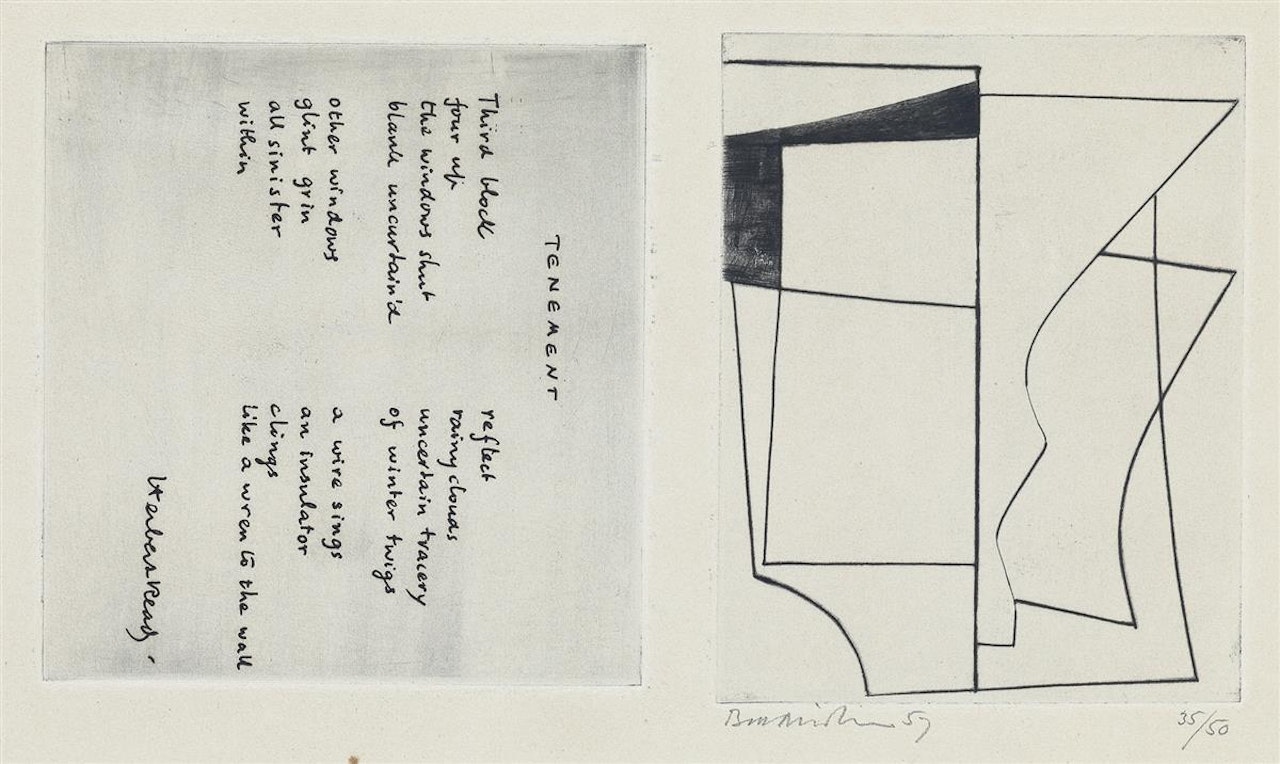 TENEMENT
Third block
four up
the windows shut
blank uncurtain'd
other windows
glint grin
all sinister
within
reflect
rainy clouds
uncertain tracery
of winter twigs
a wire sings
an insulator
clings
like a wren to the wall
Herbert Read
Ben Nicholson
35/50